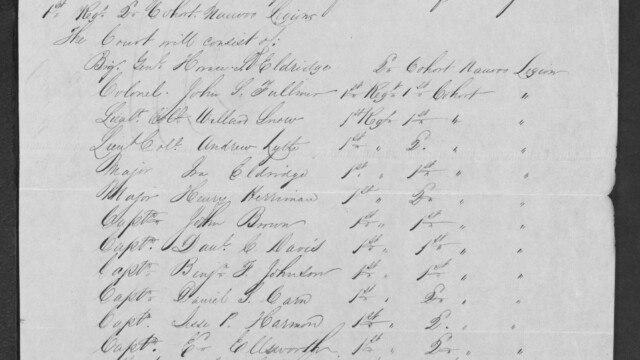 1st Regt 2d Cohort Nauvoo Legion
The Court will consist of:
Brig. Genl. Horace S. Eldridge 2d Cohort Nauvoo Legion
Colonel John S. Fullmer 1st Regt. 1st Cohort "
Lieut. Col. Willard Snow 1st Regt. 1st " "
Lieut. Col. Andrew Lytle 1st " 2d " "
Major Ira Eldridge 1st " 1st " "
Major Henry Herriman 1st " 2d " "
Captn. John Brown 1st " 1st " "
Captn. Danl. C. Davis 1st " 1st " "
Captn. Benjn. F. Johnson 1st " 1st " "
Captn. Daniel G. Carn 1st " 2d " "
Captn. Jesse P. Harmon 1st " 2d " "
Captn. Ellsworth 1st " 2d " "